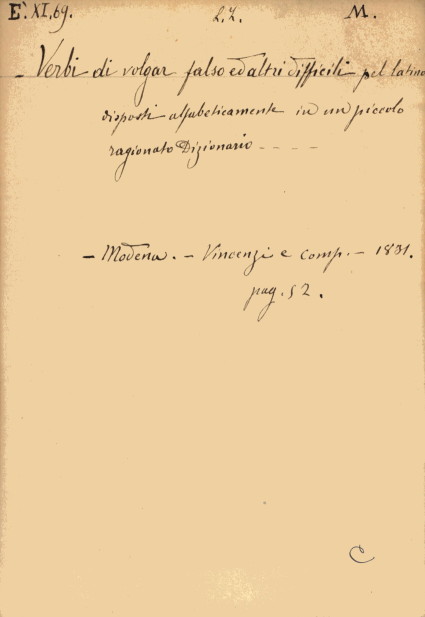 E. XI, 69. 2.7. M.
- Verbi di volgar falso ed altri difficili pel latino
disposti alfabeticamente in un piccolo
ragionato Dizionario - - - -
- Modena. - Vincenzi e comp. - 1831.
pag. 52.
C